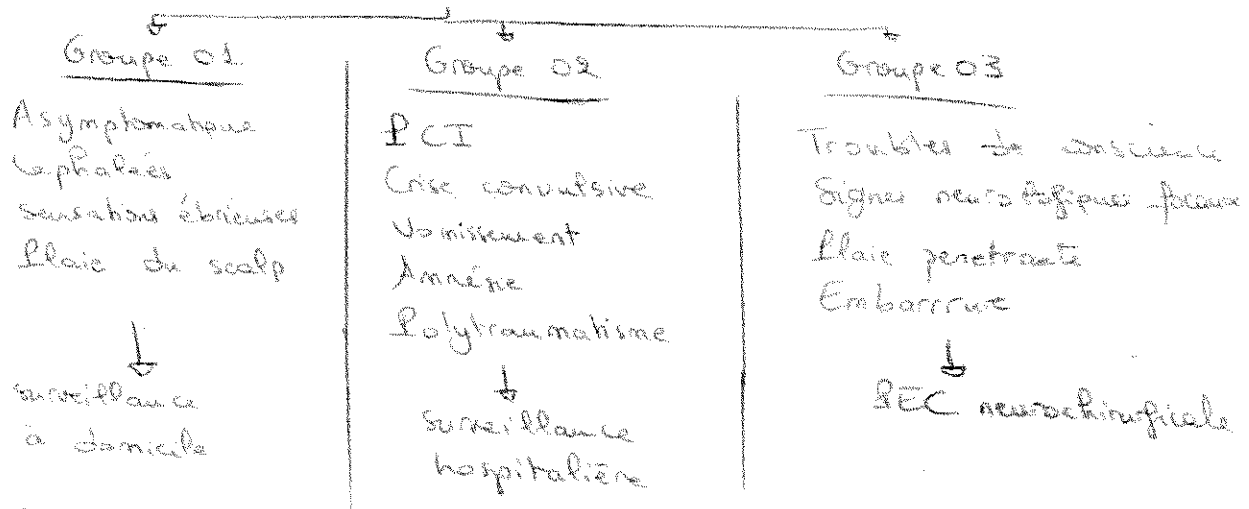 Groupe 01
Asymptomatique
Cephalées
sensations ébrieuses
Plaie du scalp
surveillance
à domicile
Groupe 02
PCI
Crise convulsive
Vomissement
Amnésie
Polytraumatisme
surveillance
hospitalière
Groupe 03
Troubles de conscience
Signes neurologiques focaux
Plaie penetrante
Embarrrure
PEC neurochirurgicale